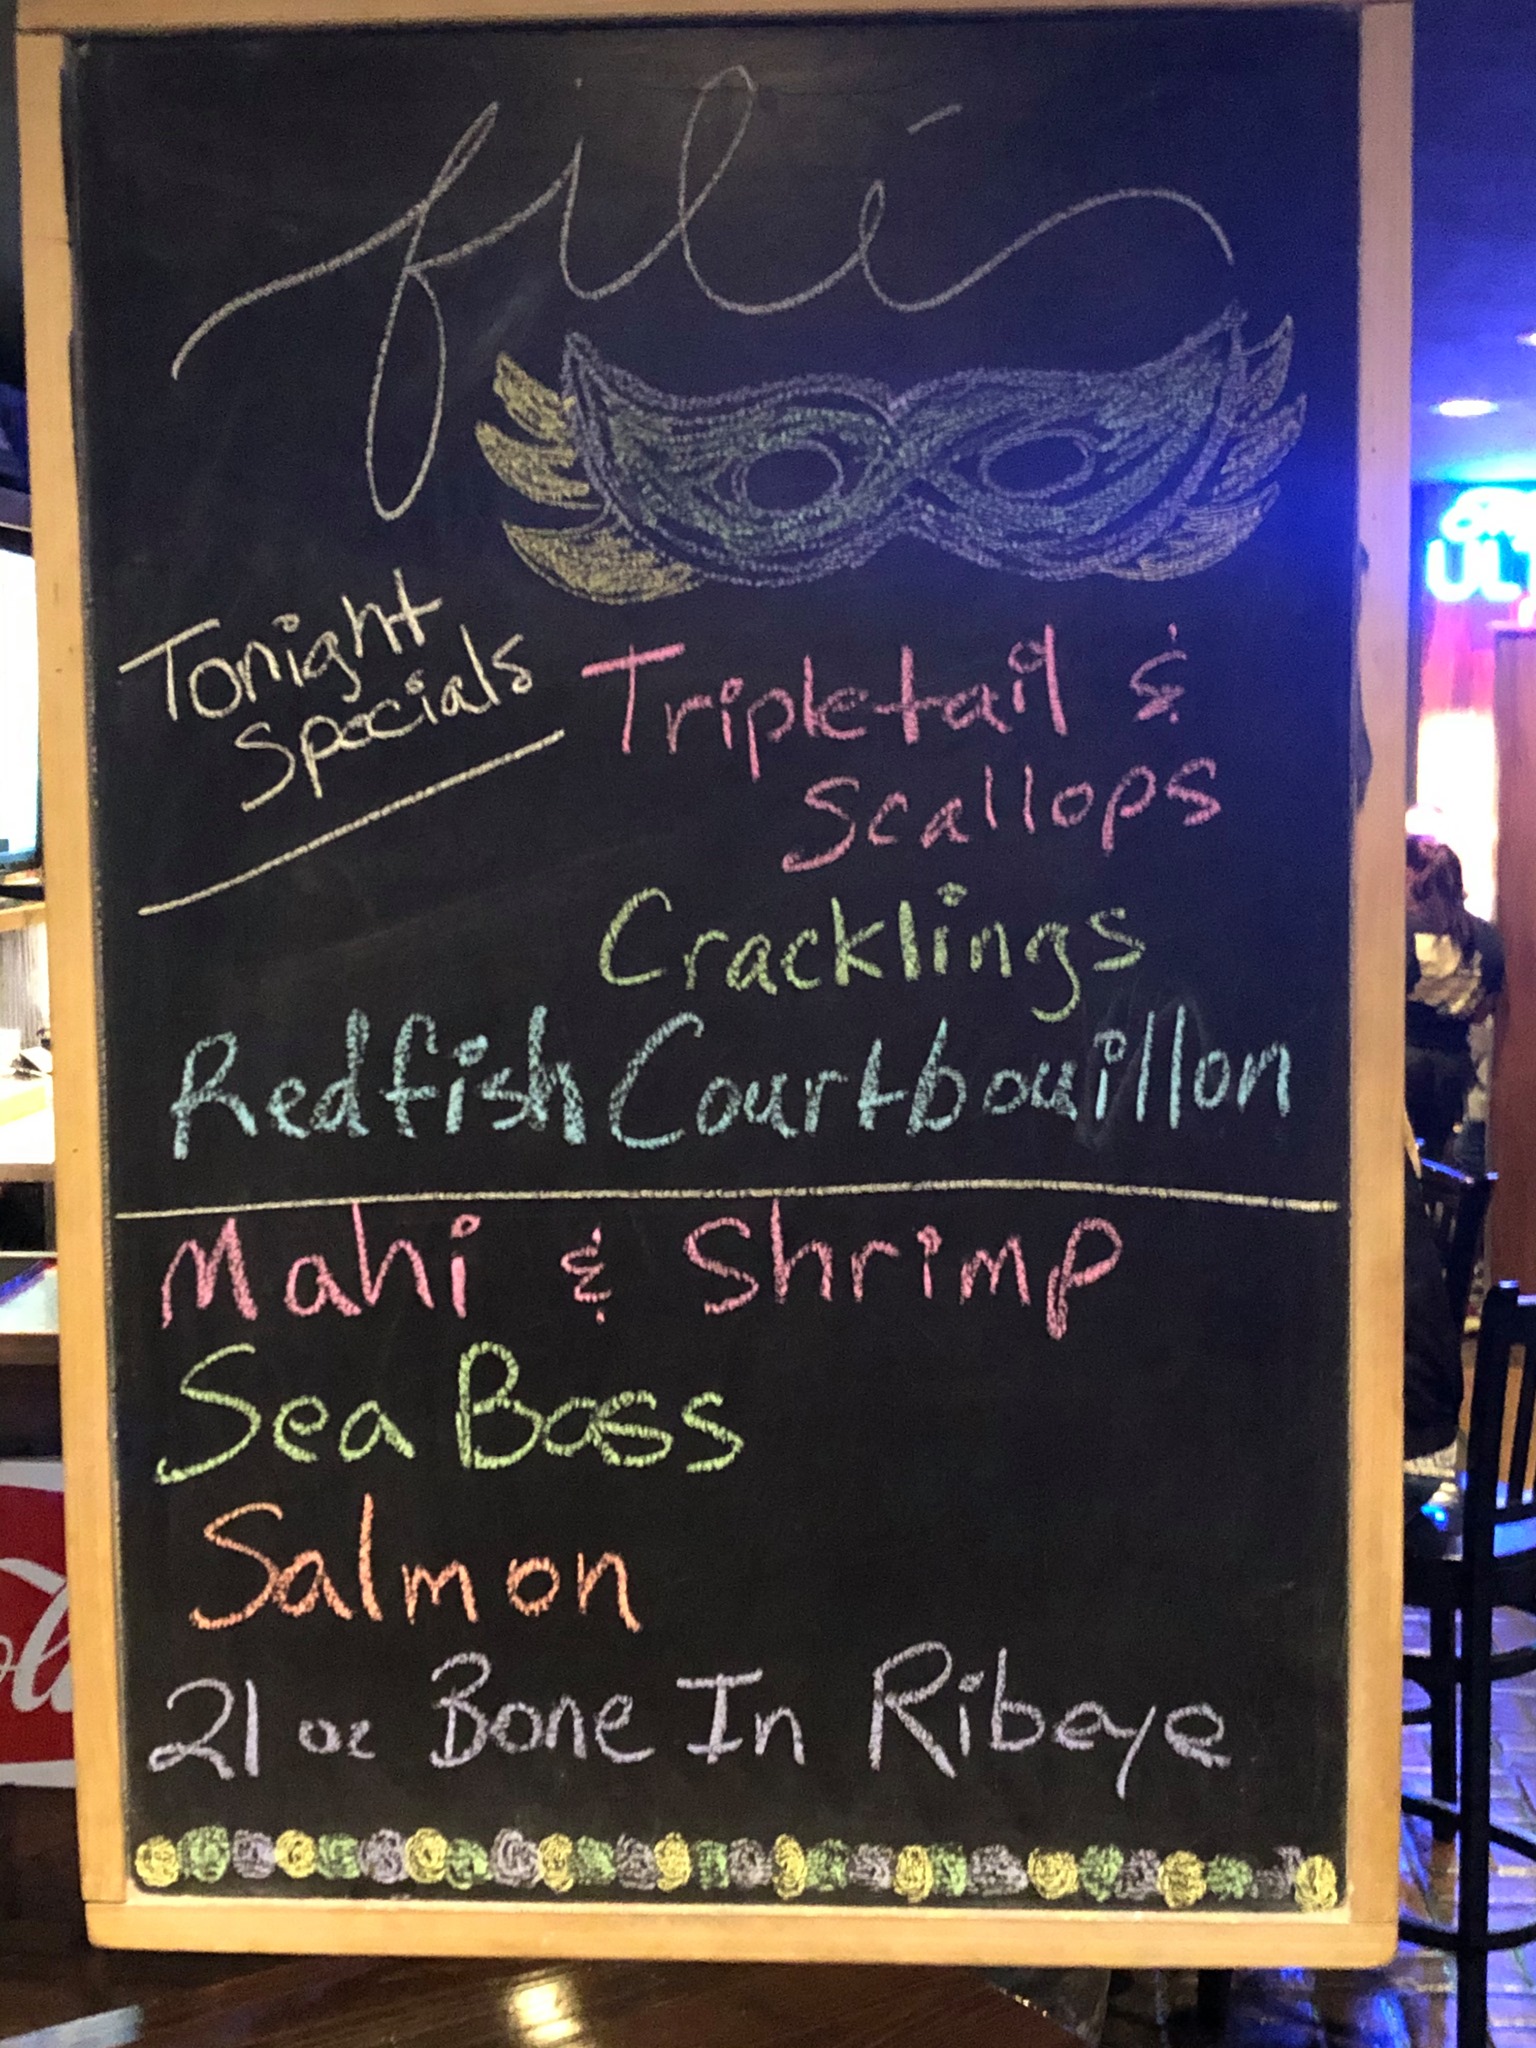 filé
Tonight
Specials
Tripletail &
Scallops
Cracklings
Redfish Courtbouillon
Mahi & Shrimp
Sea Bass
Salmon
21 oz Bone In Ribeye